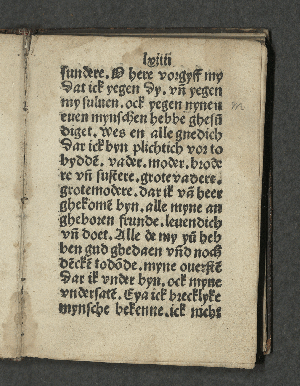 lxiiii
sundere. O here vorgyff my
Dat ick yegen dy. vn̄ yegen
my suluen. ock yegen mynen
euen mynschen hebbe ghesū
diget. Wes en alle gnedich
Dar ick byn plichtich vor to
byddē. vader. moder. brode
re vn̄ sustere. grote vadere.
grotemodere. dar ik vā heer
ghekomē byn. alle myne an
gheboren frunde. leuendich
vn̄ doet. Alle de my yū heb
ben gud ghedaen vn̄d noch
dēckē to dōnde. myne ouerstē
Dar ik vnder byn. ock myne
vndersatē. Eya ick brecklyke
mynsche bekenne. ick